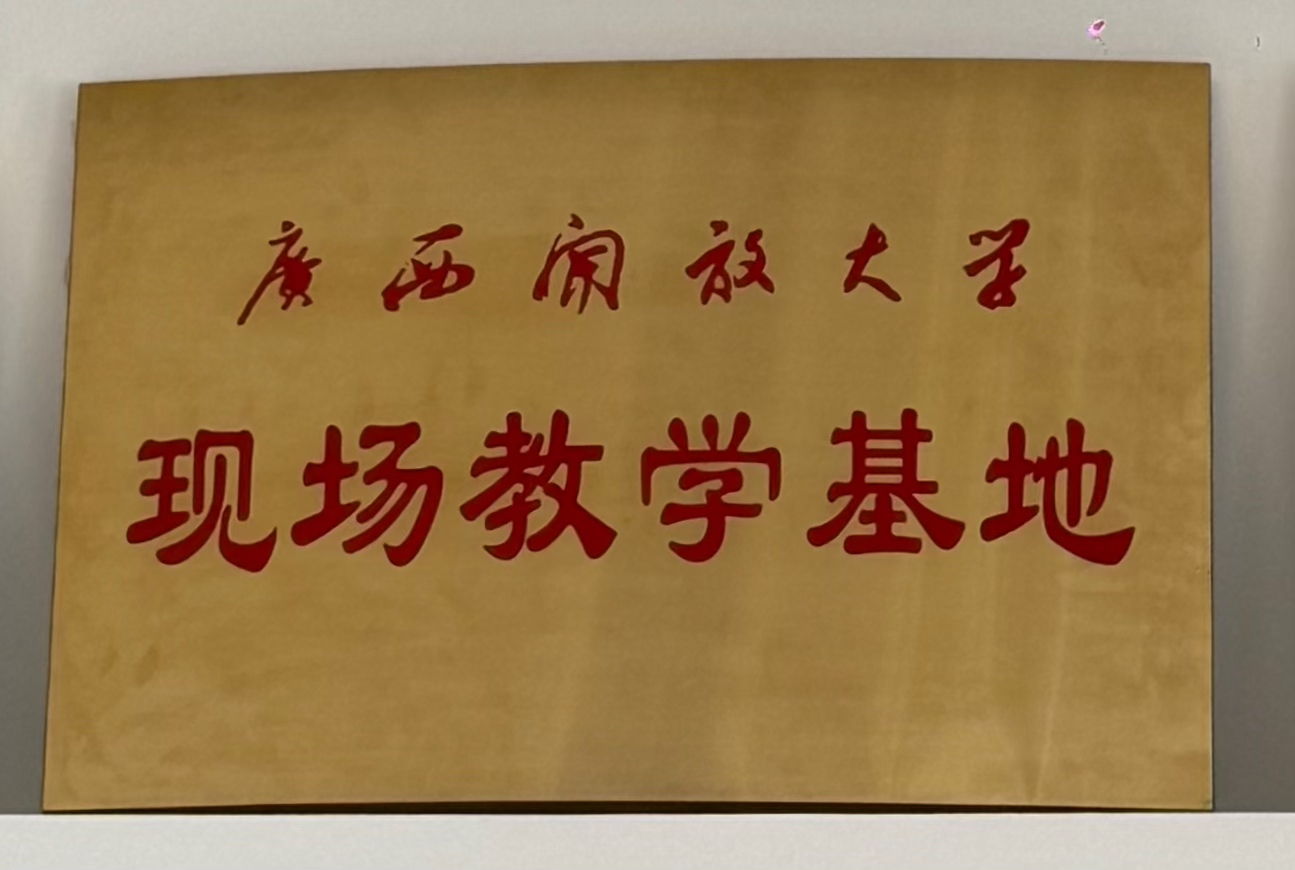 廣西開放大学
现场教学基地